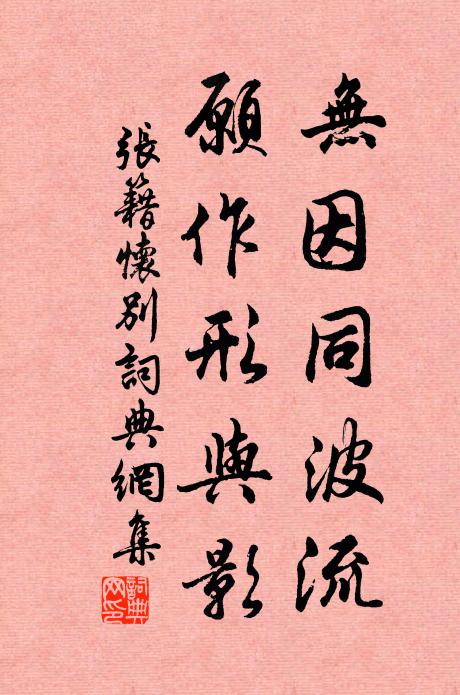 無因同波流
願作形與影
張籍懷別詞典網集
詞典
网印